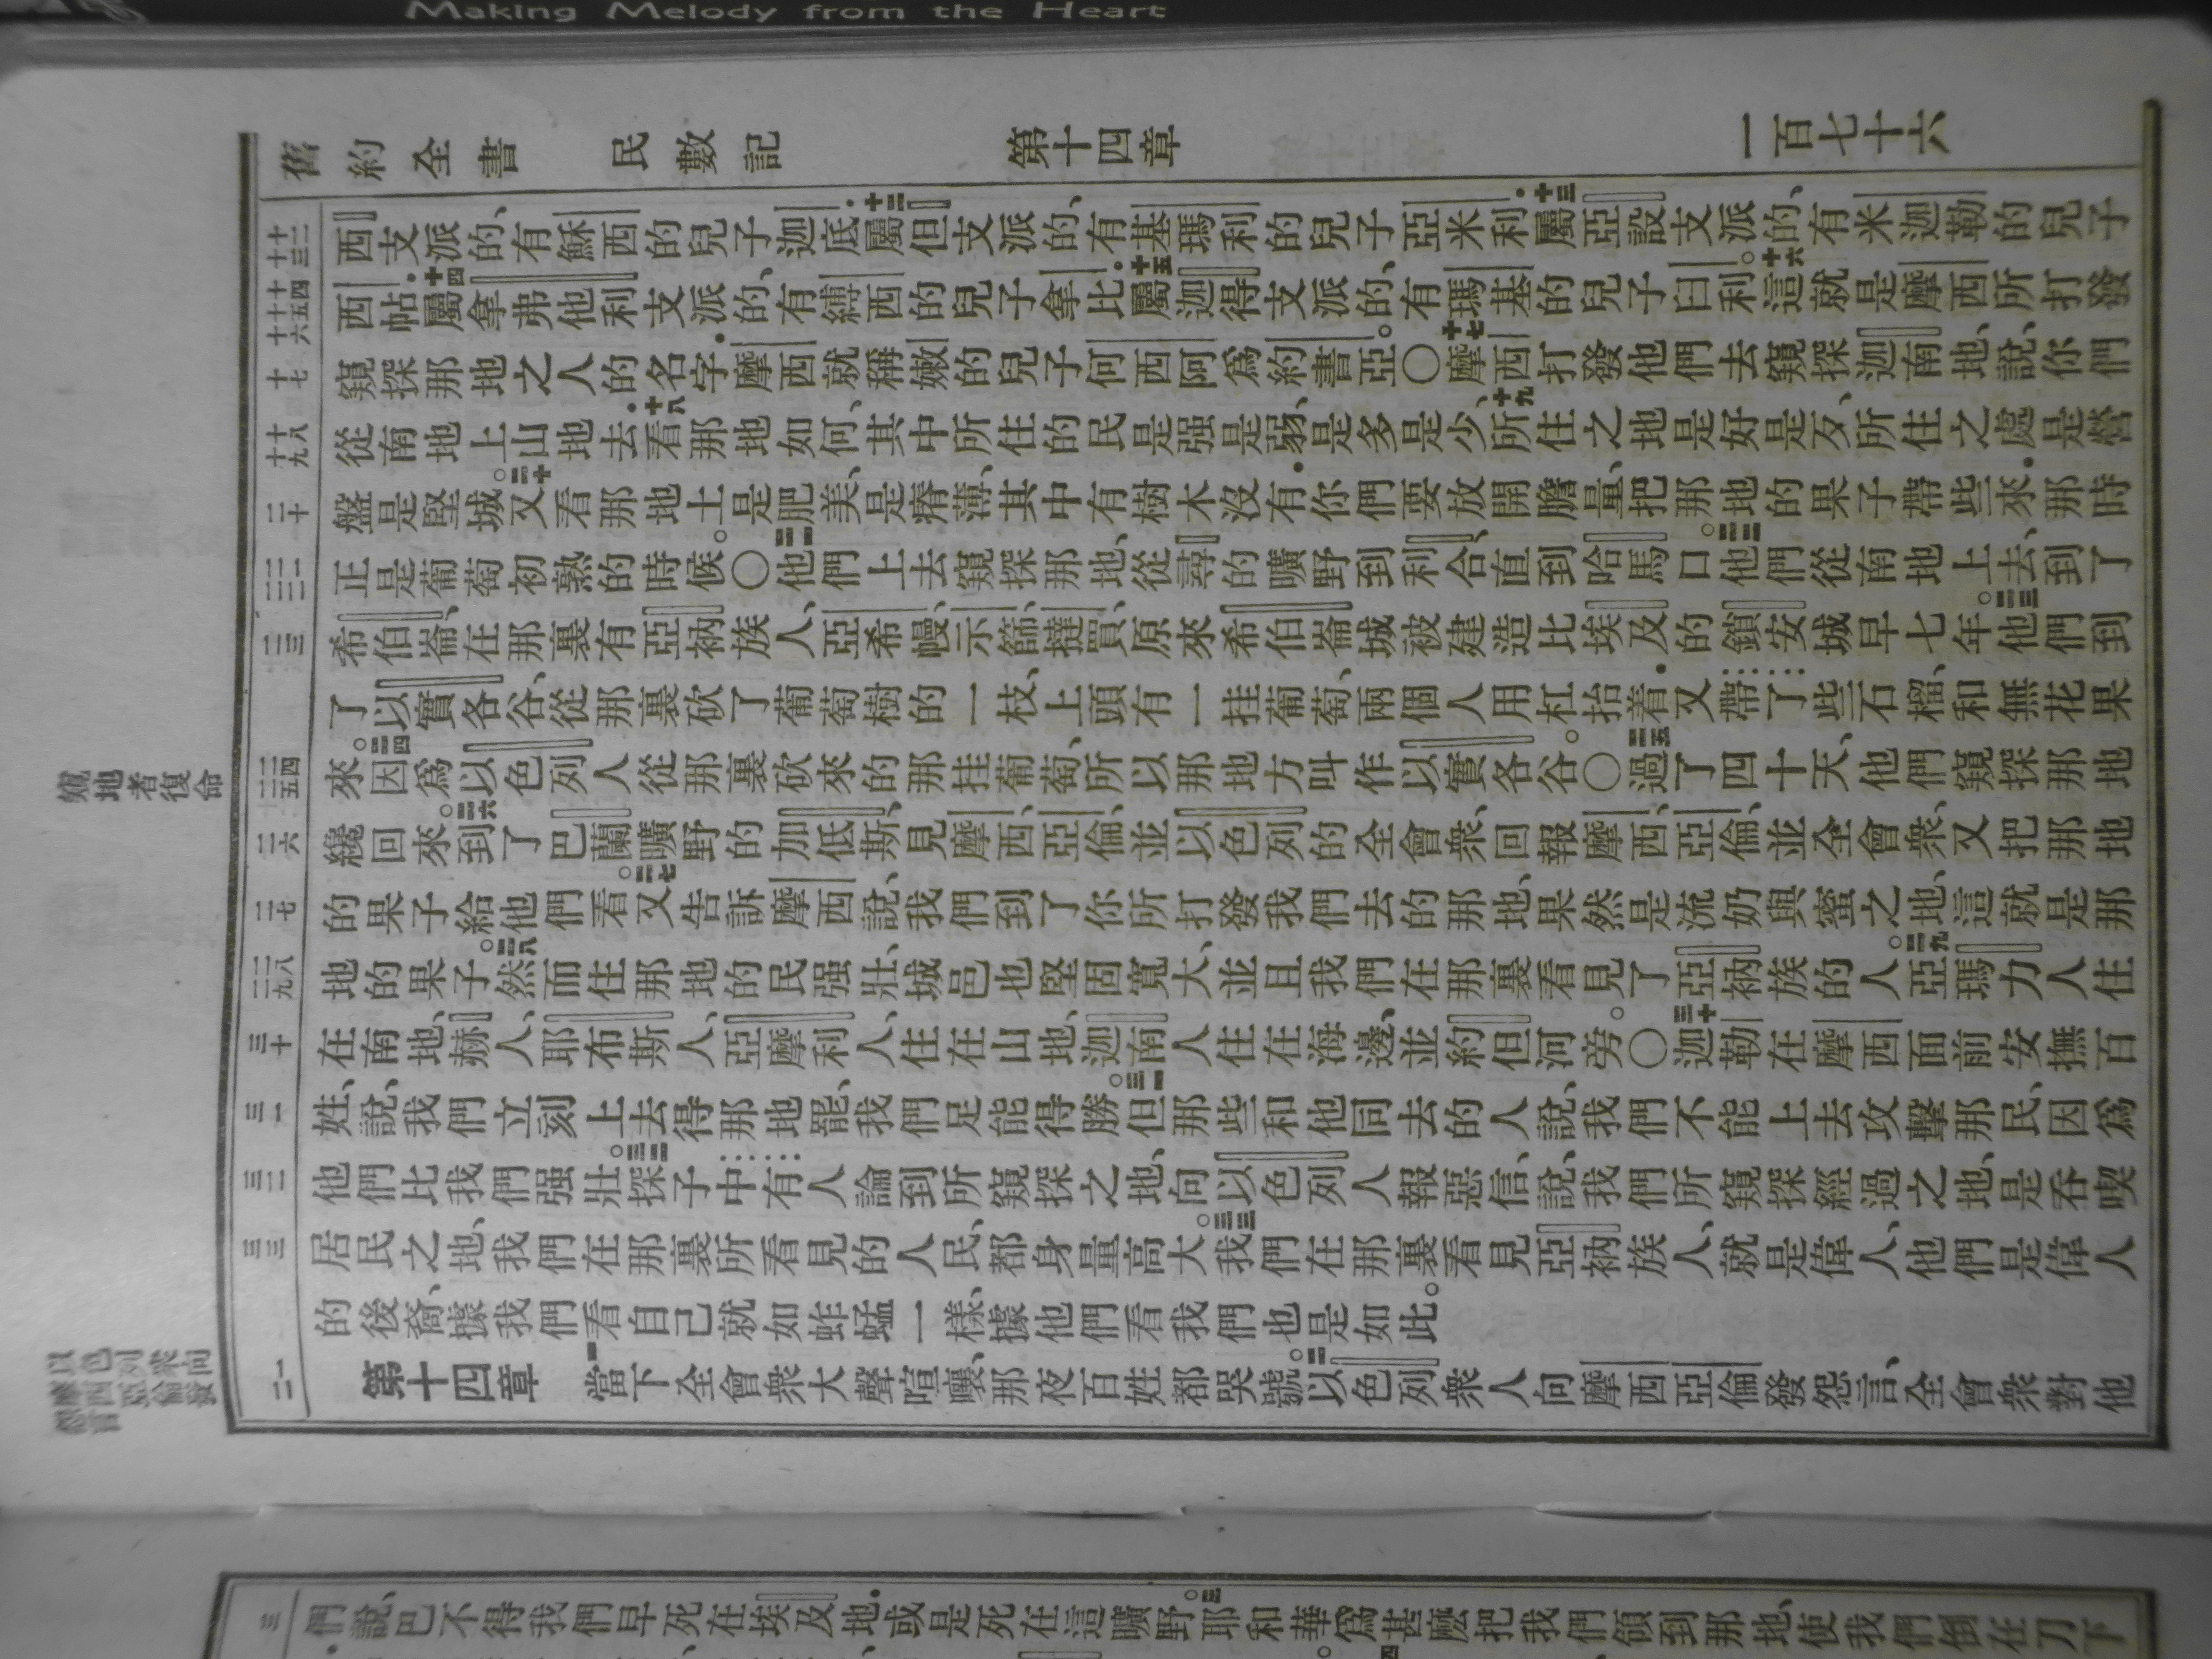 Making Melody from the Heart
舊約全書 民數記 第十四章 一百七十六
十二 十三
西支派的、有穌西的兒子迦底.十二屬但支派的、有基瑪利的兒子亞米利.十三屬亞設支派的、有米迦勒的兒子
十四 十五 十六
西帖.十四屬拿弗他利支派的、有縛西的兒子拿比.十五屬迦得支派的、有瑪基的兒子臼利。十六這就是摩西所打發
十七
窺探那地之人的名字.摩西就稱嫩的兒子何西阿爲約書亞。〇十七摩西打發他們去窺探迦南地、說、你們
十八 十九
從南地上山地去.十八看那地如何、其中所住的民是强是弱、是多是少、十九所住之地是好是歹、所住之處是營
二十
盤是堅城。二十又看那地土是肥美、是瘠薄、其中有樹木沒有.你們要放開膽量、把那地的果子帶些來.那時
二一 二二
正是葡萄初熟的時候。〇二一他們上去窺探那地、從尋的曠野到利合、直到哈馬口。二二他們從南地上去、到了
二三
希伯崙、在那裏有亞衲族人、亞希幔、示篩、撻買、原來希伯崙城被建造比埃及的鎖安城早七年。二三他們到
了以實各谷、從那裏砍了葡萄樹的一枝、上頭有一挂葡萄、兩個人用杠抬着.又帶了些石榴、和無花果
二四 二五
來。二四因爲以色列人從那裏砍來的那挂葡萄、所以那地方叫作以實各谷。〇二五過了四十天、他們窺探那地
窺地者復命
二六
纔回來。二六到了巴蘭曠野的加低斯、見摩西、亞倫、並以色列的全會衆、回報摩西、亞倫、並全會衆、又把那地
二七
的果子給他們看。二七又告訴摩西說、我們到了你所打發我們去的那地、果然是流奶與蜜之地、這就是那
二八 二九
地的果子。二八然而住那地的民强壯、城邑也堅固寬大、並且我們在那裏看見了亞衲族的人。二九亞瑪力人住
三十
在南地、赫人、耶布斯人、亞摩利人、住在山地、迦南人住在海邊、並約但河旁。〇三十迦勒在摩西面前安撫百
三一
姓、說、我們立刻上去得那地罷、我們足能得勝。三一但那些和他同去的人說、我們不能上去攻擊那民、因爲
三二
他們比我們强壯。三二探子中有人論到所窺探之地、向以色列人報惡信、說、我們所窺探經過之地、是吞喫
三三
居民之地、我們在那裏所看見的人民、都身量高大。三三我們在那裏看見亞衲族人、就是偉人、他們是偉人
的後裔、據我們看自己就如蚱蜢一樣、據他們看我們也是如此。
一 二
第十四章 一當下全會衆大聲喧嚷、那夜百姓都哭號。二以色列衆人向摩西亞倫發怨言、全會衆對他
以色列衆向
摩西亞倫發
怨言
三
們說、巴不得我們早死在埃及地.或是死在這曠野。三耶和華爲甚麽把我們領到那地、使我們倒在刀下